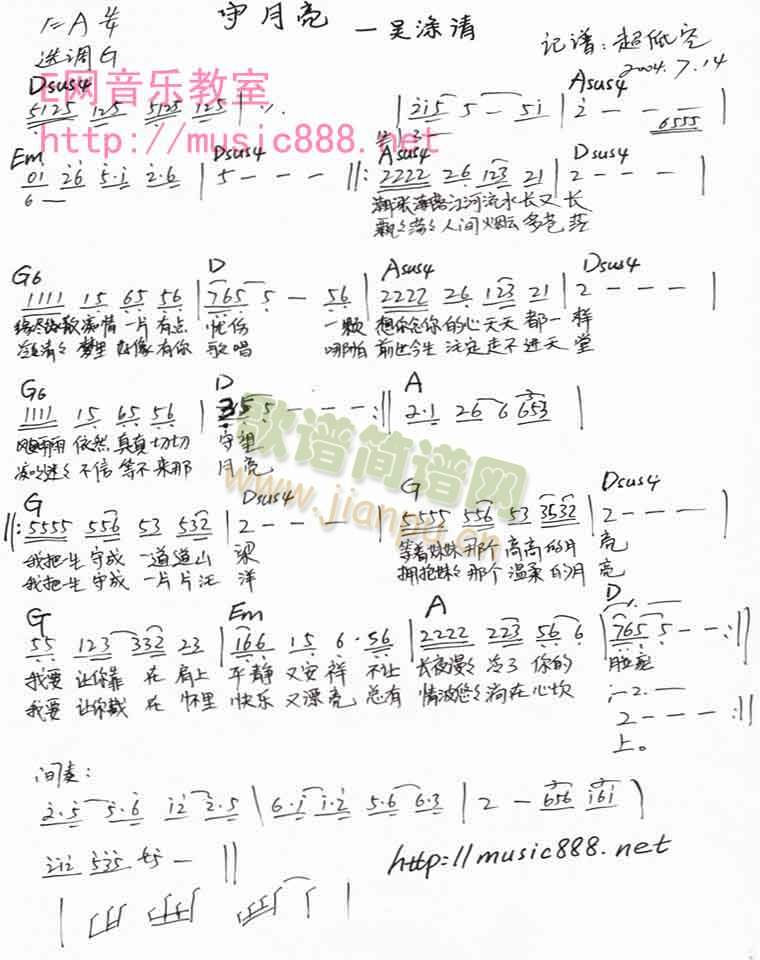 1=A 4/4
守月亮 —吴涤清
选调G
记谱:超低空
2004.7.14
E网音乐教室
http://music888.net
Dsus4 Asus4
5125 125 5125 125 | ٪ | 215 5 — 51 | 2 — — 6555 |
Em Dsus4 Asus4 Dsus4
01 26 5·1 2·6 | 5 — — — ‖: 2222 26 123 21 | 2 — — — |
6 —
潮涨潮落江河流水长又长
飘飘荡荡人间烟云多苍茫
G6 D Asus4 Dsus4
1111 15 65 56 | 765 5 — 56 | 2222 26 123 21 | 2 — — — |
缘尽缘散痴情一片有点 忧伤 一颗 想你念你的心天天都一样
冷冷清清梦里好像有你 歌唱 哪怕 前世今生注定走不进天堂
G6 D A
1111 15 65 56 | 35 5 — — — :‖ 2·1 26 6 653 |
风风雨雨依然真真切切 守望
不信等不来那 月亮
歌谱简谱网
www.jianpu.cn
G Dsus4 G Dsus4
‖: 5555 556 53 532 | 2 — — — | 5555 556 53 3532 | 2 — — — |
我把一生守成一道道山 梁 等着妹妹那个高高的月 亮
我把一生守成一片片汪 洋 拥抱妹妹那个温柔的月 亮
G Em A D
55 123 332 23 | 166 15 6·56 | 2222 223 56 6 | 765 5 — — :‖
我要让你靠在肩上 平静又安祥 不让 长夜漫漫冷了你的 脸庞
我要让你戴在怀里 快乐又漂亮 总有 情波悠悠淌在心坎
1—2.——
2 — — — :‖
上。
间奏:
2·5 5·6 12 2·5 | 6·1 1·2 5·6 6·3 | 2 — 656 161 |
212 535 5 — ‖
http://music888.net